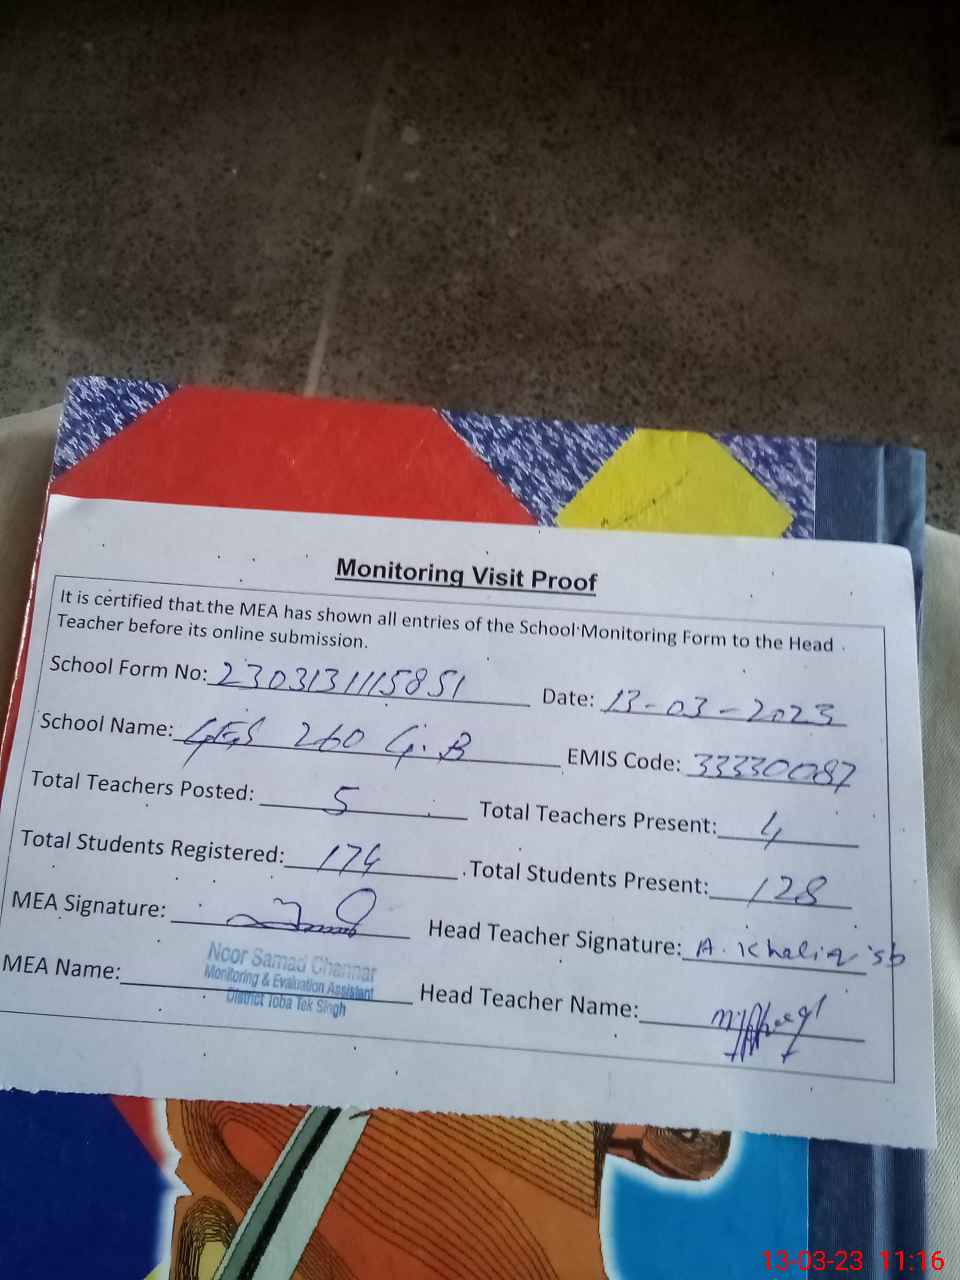 Monitoring Visit Proof
It is certified that the MEA has shown all entries of the School Monitoring Form to the Head
Teacher before its online submission.
School Form No: 2303131115851 Date: 13-03-2023
School Name: GES 260 G.B EMIS Code: 33330087
Total Teachers Posted: 5 Total Teachers Present: 4
Total Students Registered: 174 Total Students Present: 128
MEA Signature: Head Teacher Signature: A. Khaliq sb
MEA Name: Noor Samad Channar Head Teacher Name:
Monitoring & Evaluation Assistant
District Toba Tek Singh
13-03-23 11:16